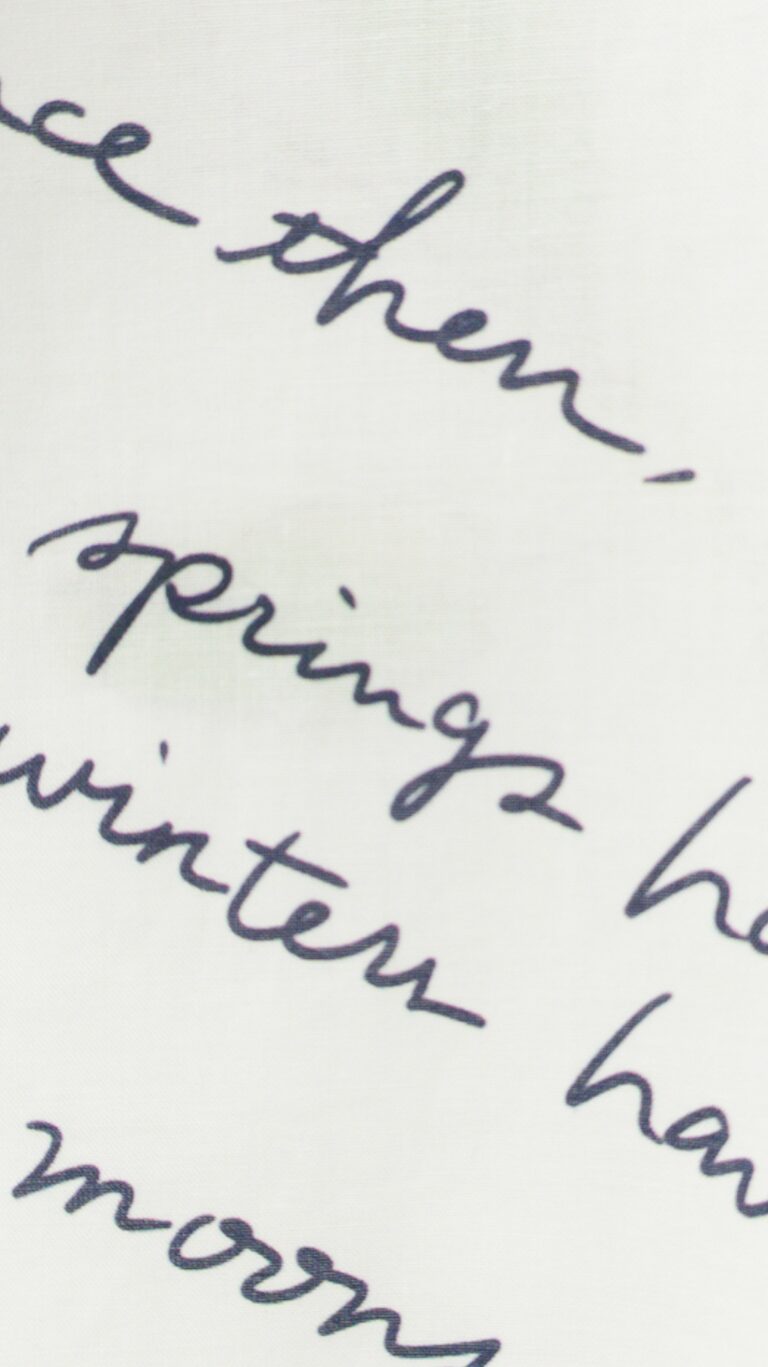 ce then,
springs ha
winters hav
moons